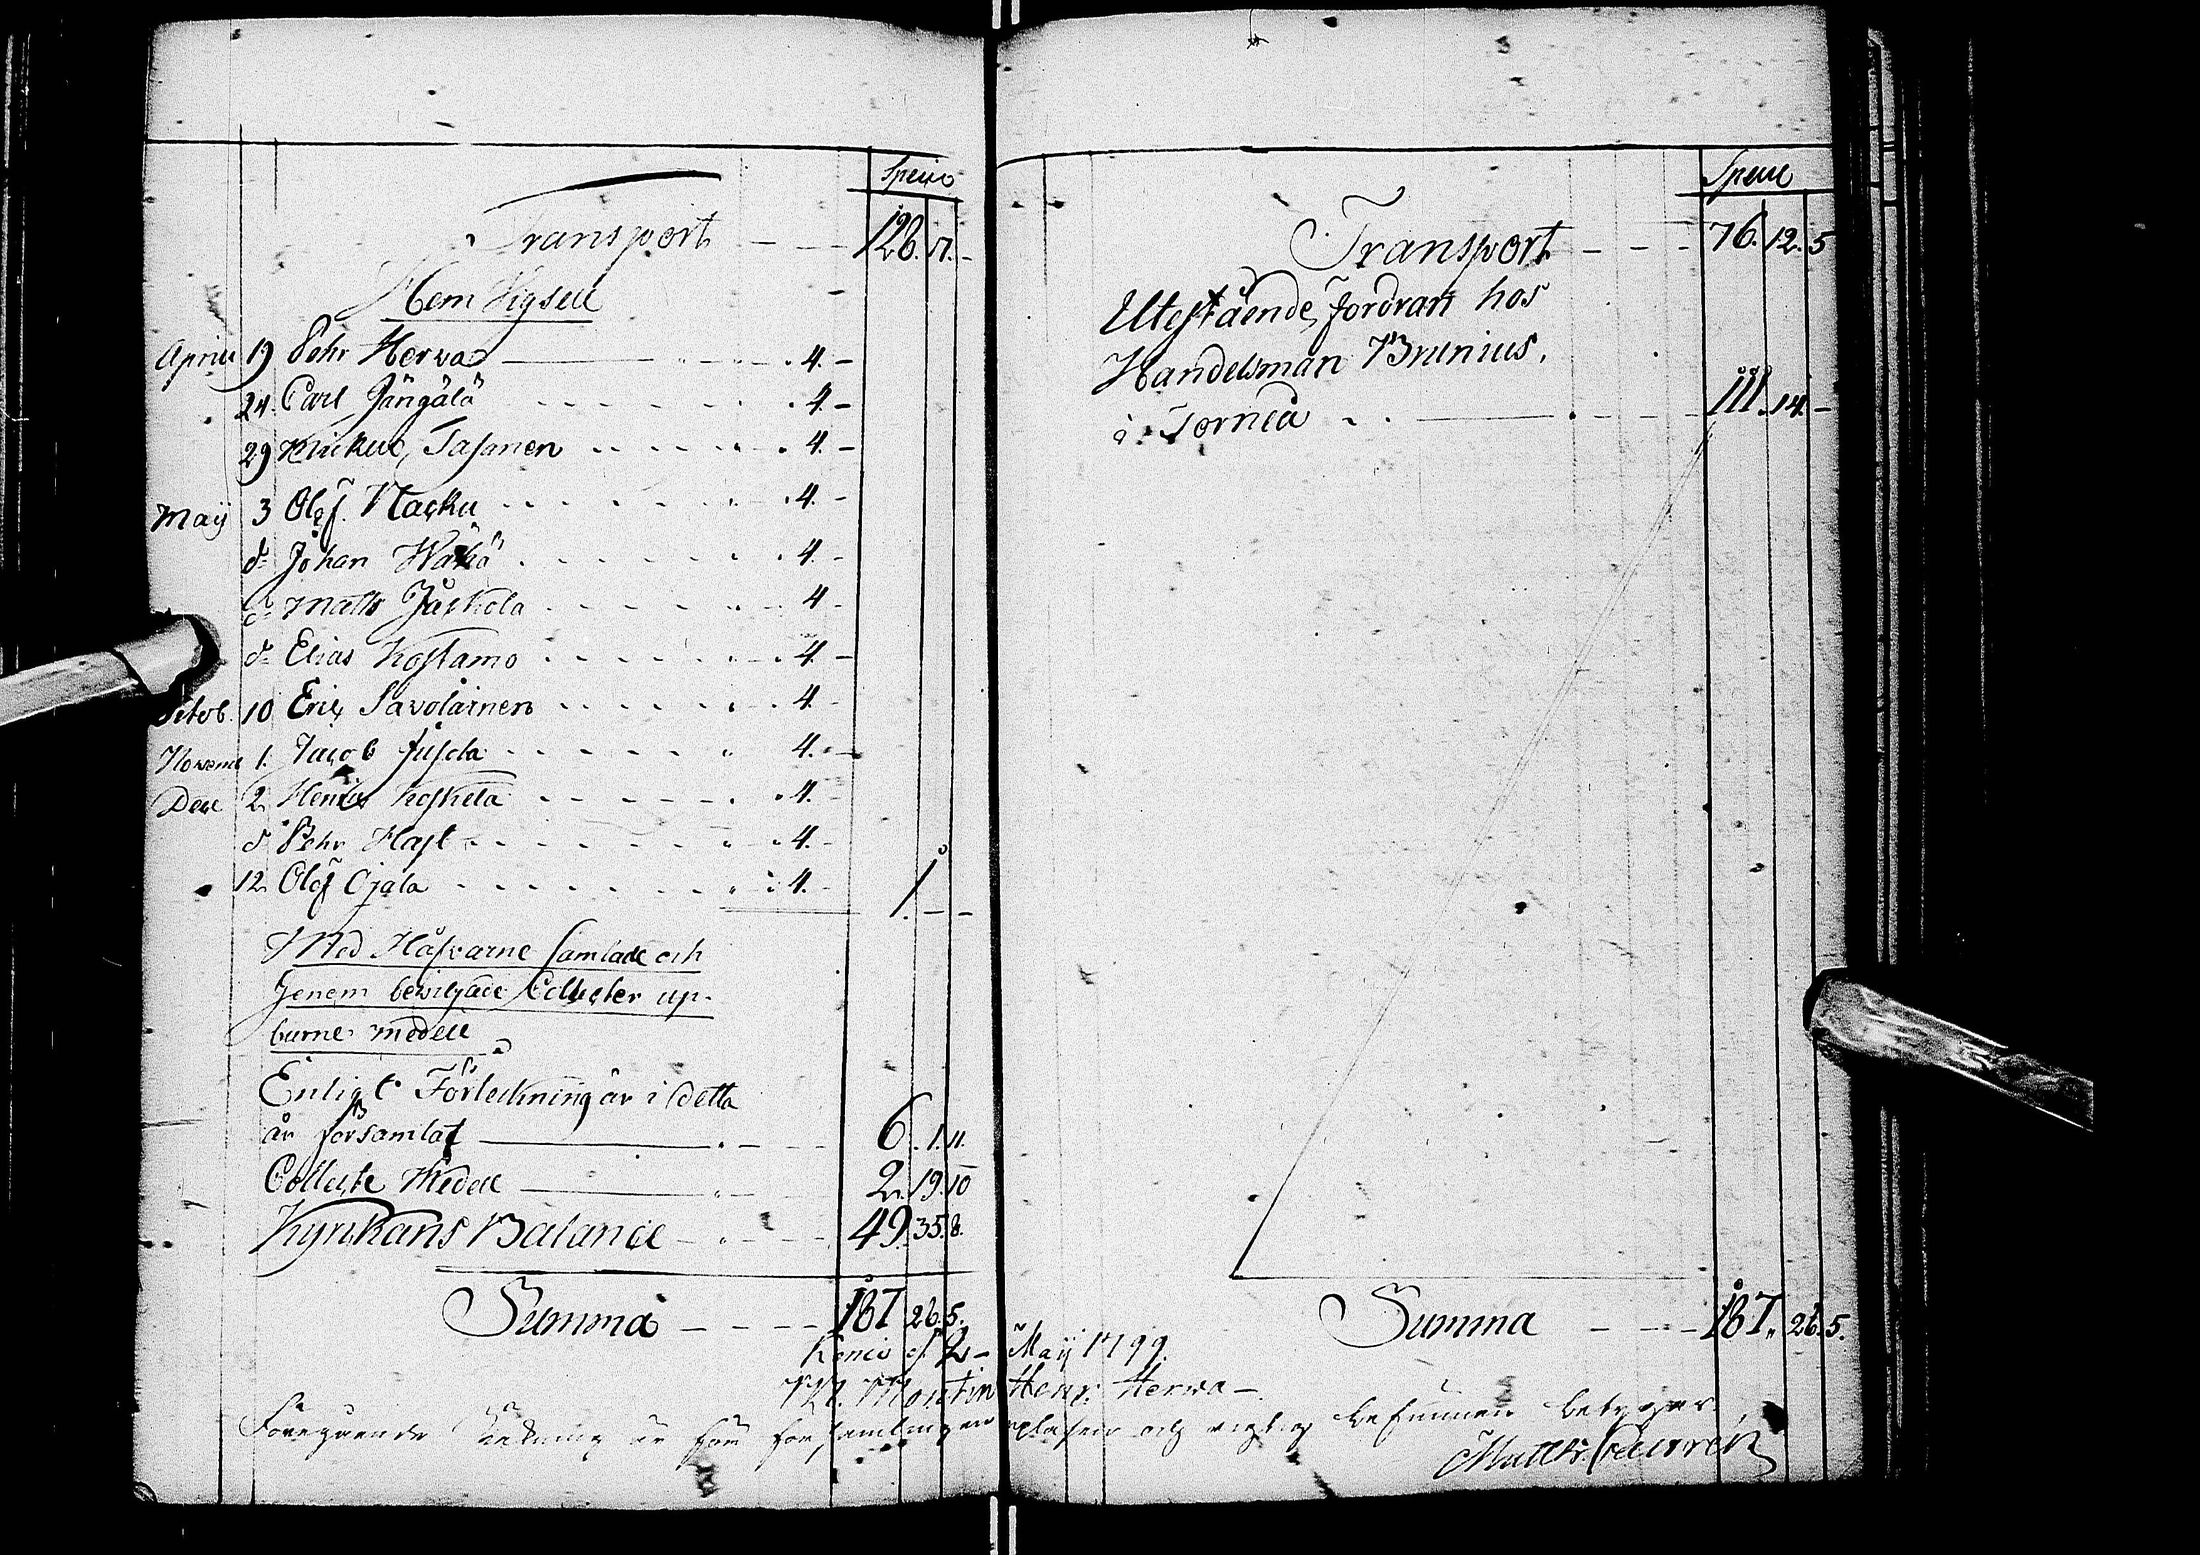 Specie
Transport - - - 128. 17. -
Hem Vigsell
Aprill 19 Pehr Herva - 4. -
24. Carl Jängälä - 4. -
29 Mickel Tasanen - 4. -
Maij 3 Olof Nacku - 4. -
do Johan Wähä - 4. -
do Matts Jaskola - 4. -
do Elias Kostamo - 4. -
Octob. 10 Eric Savolainen - 4. -
Novemb 1. Jacob Jusola - 4. -
Dece 2. Henric Koskela - 4. -
5 Pehr Hast - 4. -
12. Olof Ojala - 4. -
1. - -
Med Håfvarne samlade och
Genom bewiljade Collecter up-
burne medell
Enligt Förteckning är i detta
år församlat - 6. 1. 11.
Collecte Medell - 2. 19. 10
Kyrkans Balance - 49. 35. 8.
Summa - - - - 187 26. 5.
Specie
Transport - - - 76. 12. 5
Utestående fordran hos
Handelsman Brunius,
i Torneå - - - 111. 14. -
Summa - - - 187. 26. 5.
Kemi d. 2 - Maij 1799.
Henr. Herva -
Föregående Räkning är för församlingen upläsen och richtig befunnen betygar